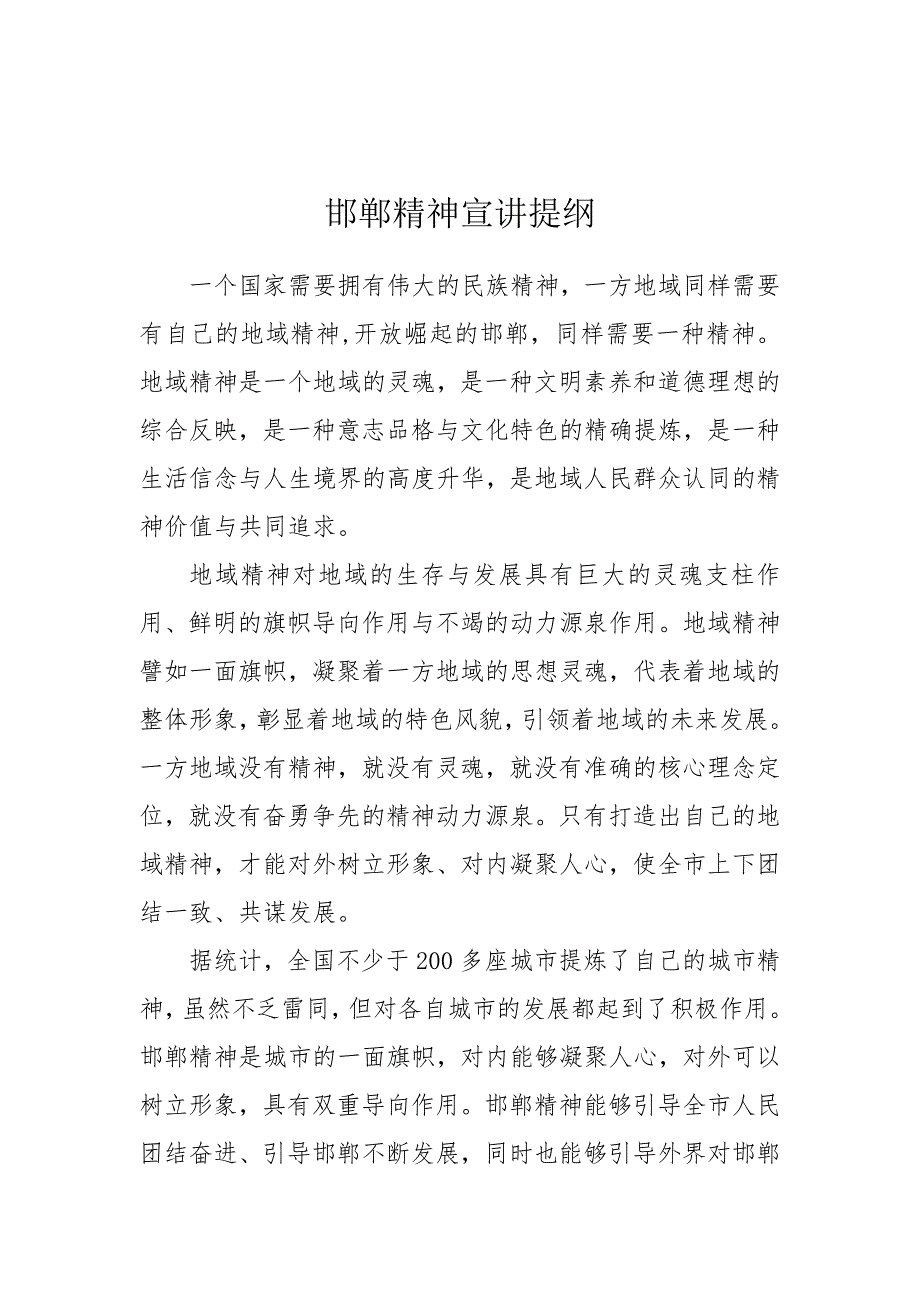 邯郸精神宣讲提纲
一个国家需要拥有伟大的民族精神，一方地域同样需要
有自己的地域精神,开放崛起的邯郸，同样需要一种精神。
地域精神是一个地域的灵魂，是一种文明素养和道德理想的
综合反映，是一种意志品格与文化特色的精确提炼，是一种
生活信念与人生境界的高度升华，是地域人民群众认同的精
神价值与共同追求。
地域精神对地域的生存与发展具有巨大的灵魂支柱作
用、鲜明的旗帜导向作用与不竭的动力源泉作用。地域精神
譬如一面旗帜，凝聚着一方地域的思想灵魂，代表着地域的
整体形象，彰显着地域的特色风貌，引领着地域的未来发展。
一方地域没有精神，就没有灵魂，就没有准确的核心理念定
位，就没有奋勇争先的精神动力源泉。只有打造出自己的地
域精神，才能对外树立形象、对内凝聚人心，使全市上下团
结一致、共谋发展。
据统计，全国不少于 200 多座城市提炼了自己的城市精
神，虽然不乏雷同，但对各自城市的发展都起到了积极作用。
邯郸精神是城市的一面旗帜，对内能够凝聚人心，对外可以
树立形象，具有双重导向作用。邯郸精神能够引导全市人民
团结奋进、引导邯郸不断发展，同时也能够引导外界对邯郸